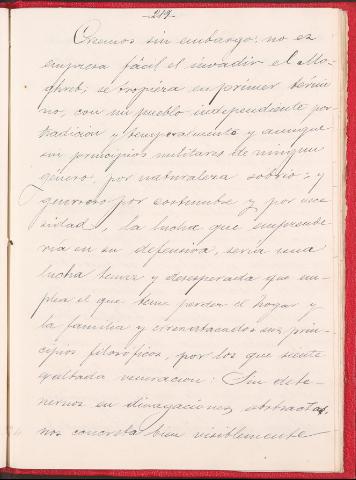 -219-
Creemos sin embargo, no es
empresa fácil el invadir el Mo-
ghreb; se tropieza en primer térmi
no, con un pueblo independiente por
tradicion y temperamento y aunque
sin principios militares de ningun
género, por naturaleza sobrio, y
guerrero por costumbre y por nece
sidad, la lucha que emprende
ria en su defensiva, seria una
lucha tenaz y desesperada que em-
plea el que teme perder el hogar y
la familia y ve atacados sus prin-
cipios filosóficos, por los que siente
exaltada veneracion: Sin dete-
nernos en divagaciones abstractas,
nos concreta bien visiblemente